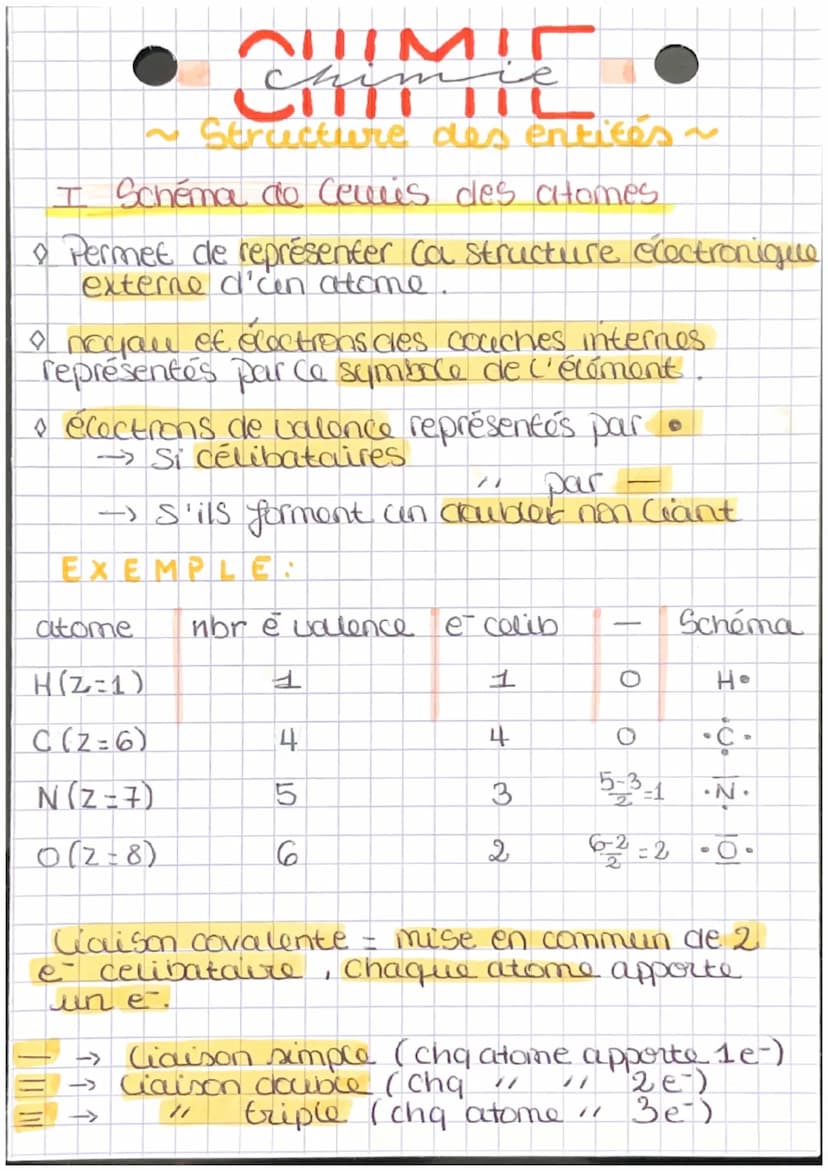 CHIMIE
chimie
~ Structure des entités ~
I Schéma de Lewis des atomes
◊ Permet de représenter la structure électronique
externe d'un atome.
◊ noyau et électrons des couches internes
représentés par le symbole de l'élément.
◊ électrons de valence représentés par •
→ Si célibataires
" par —
→ S'ils forment un doublet non liant
EXEMPLE:
atome nbr e⁻ valence e⁻ celib — Schéma
H(Z=1) 1 1 0 H•
C(Z=6) 4 4 0 •C•
N(Z=7) 5 3 5-3/2=1 •N•
O(Z=8) 6 2 6-2/2=2 •O•
Liaison covalente = mise en commun de 2
e⁻ celibataire, chaque atome apporte
un e⁻.
— → Liaison simple (chq atome apporte 1e⁻)
= → Liaison double (chq " " 2e⁻)
≡ → " triple (chq atome " 3e⁻)